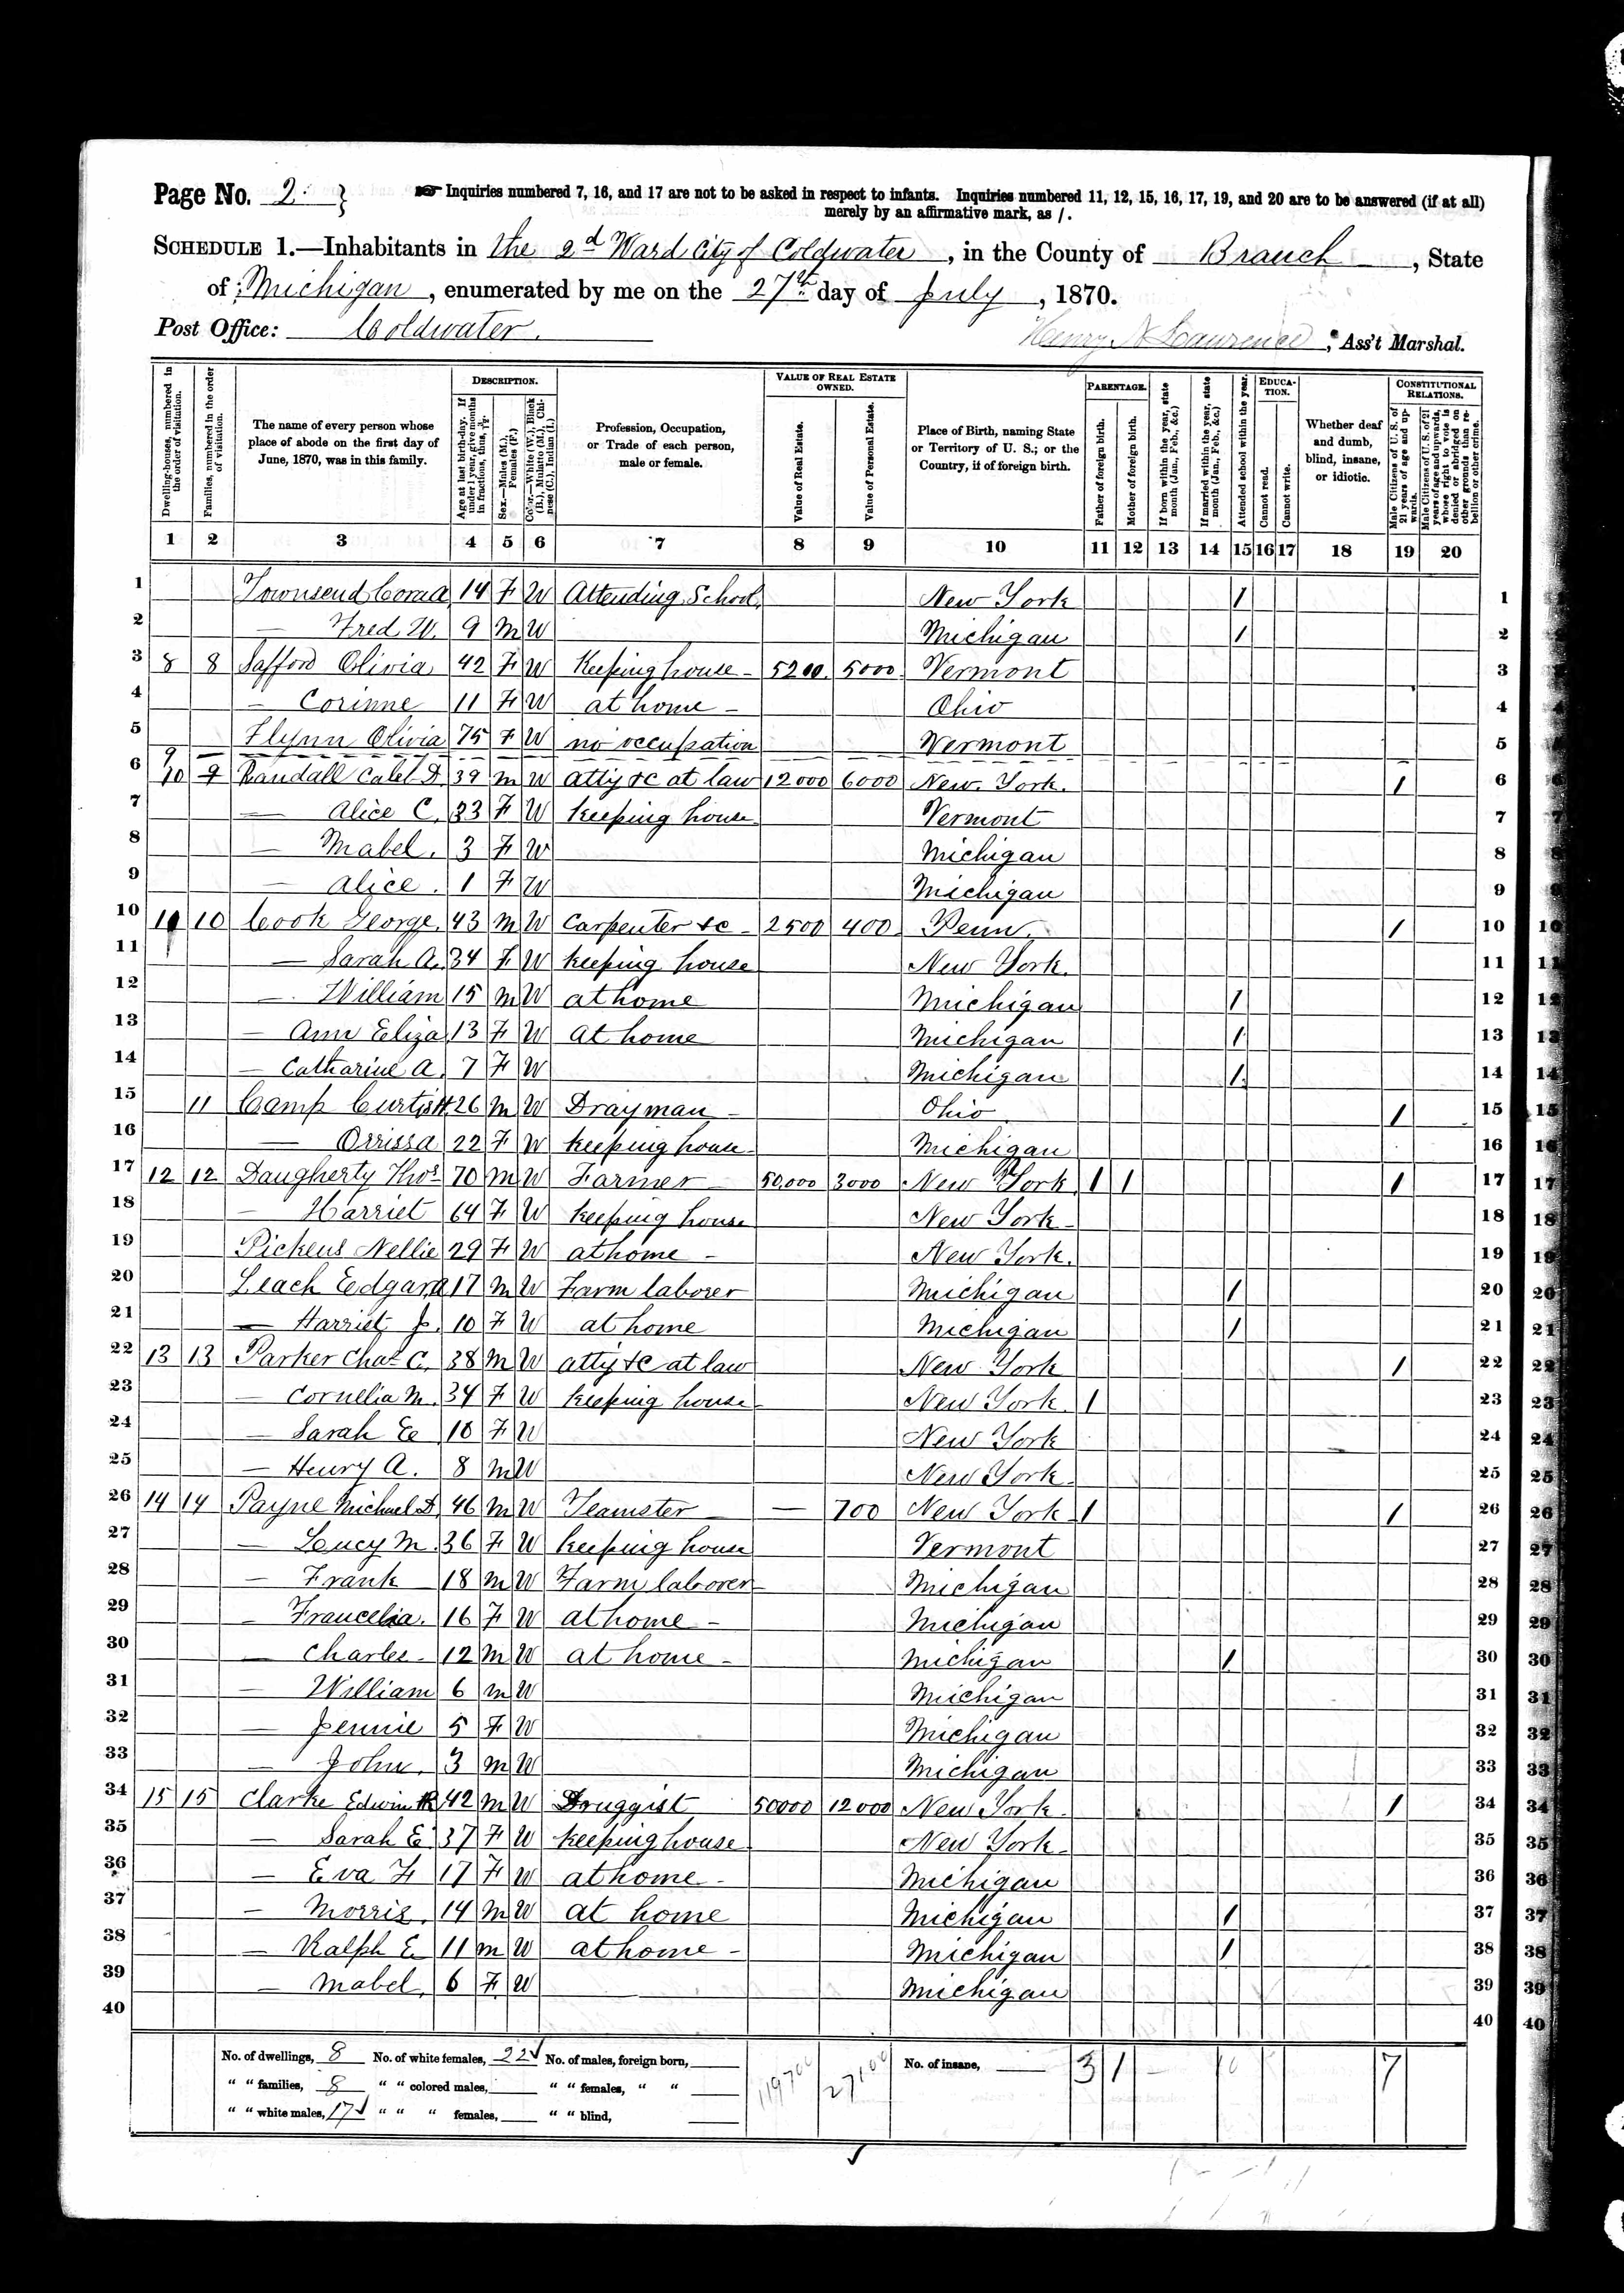 Page No. 2
Inquiries numbered 7, 16, and 17 are not to be asked in respect to infants. Inquiries numbered 11, 12, 15, 16, 17, 19, and 20 are to be answered (if at all)
merely by an affirmative mark, as /.
SCHEDULE 1.—Inhabitants in the 2d Ward City of Coldwater, in the County of Branch, State
of Michigan, enumerated by me on the 27th day of July, 1870.
Post Office: Coldwater. Henry N Lawrence, Ass't Marshal.
DESCRIPTION. VALUE OF REAL ESTATE OWNED. PARENTAGE. EDUCATION. CONSTITUTIONAL RELATIONS.
Dwelling-houses, numbered in the order of visitation.
Families, numbered in the order of visitation.
The name of every person whose place of abode on the first day of June, 1870, was in this family.
Age at last birth-day. If under 1 year, give months in fractions, thus, 3/12.
Sex.—Males (M.), Females (F.)
Color.—White (W.), Black (B.), Mulatto (M.), Chinese (C.), Indian (I.)
Profession, Occupation, or Trade of each person, male or female.
Value of Real Estate.
Value of Personal Estate.
Place of Birth, naming State or Territory of U. S.; or the Country, if of foreign birth.
Father of foreign birth.
Mother of foreign birth.
If born within the year, state month (Jan., Feb., &c.)
If married within the year, state month (Jan., Feb., &c.)
Attended school within the year.
Cannot read.
Cannot write.
Whether deaf and dumb, blind, insane, or idiotic.
Male Citizens of U. S. of 21 years of age and upwards.
Male Citizens of U. S. of 21 years of age and upwards, whose right to vote is denied or abridged on other grounds than rebellion or other crime.
1 2 3 4 5 6 7 8 9 10 11 12 13 14 15 16 17 18 19 20
1 Townsend Cora 14 F W Attending School New York 1 1
2 — Fred W. 9 M W Michigan 1 2
3 8 8 Safford Olivia 42 F W Keeping house 5200 5000 Vermont 3
4 — Corinne 11 F W at home Ohio 4
5 Flynn Olivia 75 F W no occupation Vermont 5
6 9 10 9 Randall Caleb D. 39 M W atty &c at law 12000 6000 New York. 1 6
7 — Alice C. 33 F W Keeping house Vermont 7
8 — Mabel. 3 F W Michigan 8
9 — Alice. 1 F W Michigan 9
10 11 10 Cook George 43 M W Carpenter &c 2500 400 Penn. 1 10
11 — Sarah A. 34 F W Keeping house New York. 11
12 — William 15 M W at home Michigan 1 12
13 — Ann Eliza 13 F W At home Michigan 1 13
14 — Catharine A. 7 F W Michigan 1 14
15 11 Camp Curtis H. 26 M W Drayman Ohio 1 15
16 — Orrissa 22 F W Keeping house Michigan 16
17 12 12 Daugherty Thos 70 M W Farmer 50,000 3000 New York 1 1 1 17
18 — Harriet 64 F W Keeping house New York 18
19 Pickens Nellie 29 F W at home New York. 19
20 Leach Edgar A 17 M W Farm laborer Michigan 1 20
21 — Harriet J. 10 F W at home Michigan 1 21
22 13 13 Parker Chas C. 38 M W atty &c at law New York 1 22
23 — Cornelia M. 34 F W Keeping house New York. 1 23
24 — Sarah E 10 F W New York 24
25 — Henry A. 8 M W New York 25
26 14 14 Payne Michael D. 46 M W Teamster — 700 New York 1 1 26
27 — Lucy M. 36 F W Keeping house Vermont 27
28 — Frank 18 M W Farm laborer Michigan 28
29 — Francelia. 16 F W at home Michigan 29
30 — Charles 12 M W at home Michigan 1 30
31 — William 6 M W Michigan 31
32 — Jennie 5 F W Michigan 32
33 — John. 3 M W Michigan 33
34 15 15 Clarke Edwin R 42 M W Druggist 50000 12000 New York 1 34
35 — Sarah E 37 F W Keeping house New York 35
36 — Eva F 17 F W at home Michigan 36
37 — Morris. 14 M W at home Michigan 1 37
38 — Ralph E 11 M W at home Michigan 1 38
39 — Mabel. 6 F W Michigan 39
40 40
No. of dwellings, 8 No. of white females, 22 No. of males, foreign born, 119700 27100 No. of insane, 3 1 10 7
" " families, 8 " " colored males, " " females, " "
" " white males, 17 " " " females, " " blind,